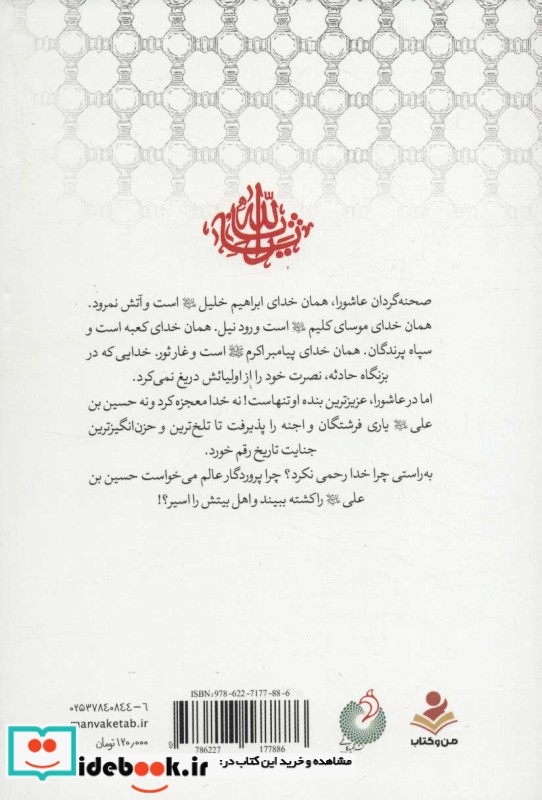 صحنه‌گردان عاشورا، همان خدای ابراهیم خلیل ﷺ است و آتش نمرود.
همان خدای موسای کلیم ﷺ است و رود نیل. همان خدای کعبه است و
سپاه پرندگان. همان خدای پیامبر اکرم ﷺ است و غار ثور. خدایی که در
بزنگاه حادثه، نصرت خود را از اولیائش دریغ نمی‌کرد.
اما در عاشورا، عزیزترین بنده او تنهاست! نه خدا معجزه کرد و نه حسین بن
علی ﷺ یاری فرشتگان و اجنه را پذیرفت تا تلخ‌ترین و حزن‌انگیزترین
جنایت تاریخ رقم خورد.
به‌راستی چرا خدا رحمی نکرد؟ چرا پروردگار عالم می‌خواست حسین بن
علی ﷺ را کشته ببیند و اهل بیتش را اسیر؟!
ISBN: 978-622-7177-88-6
۰۲۵۳۷۸۴۰۸۴۴-۶
manvaketab.ir
۱۲۰,۰۰۰ تومان
9 786227 177886
من و کتاب
مشاهده و خرید این کتاب در:
idebook.ir